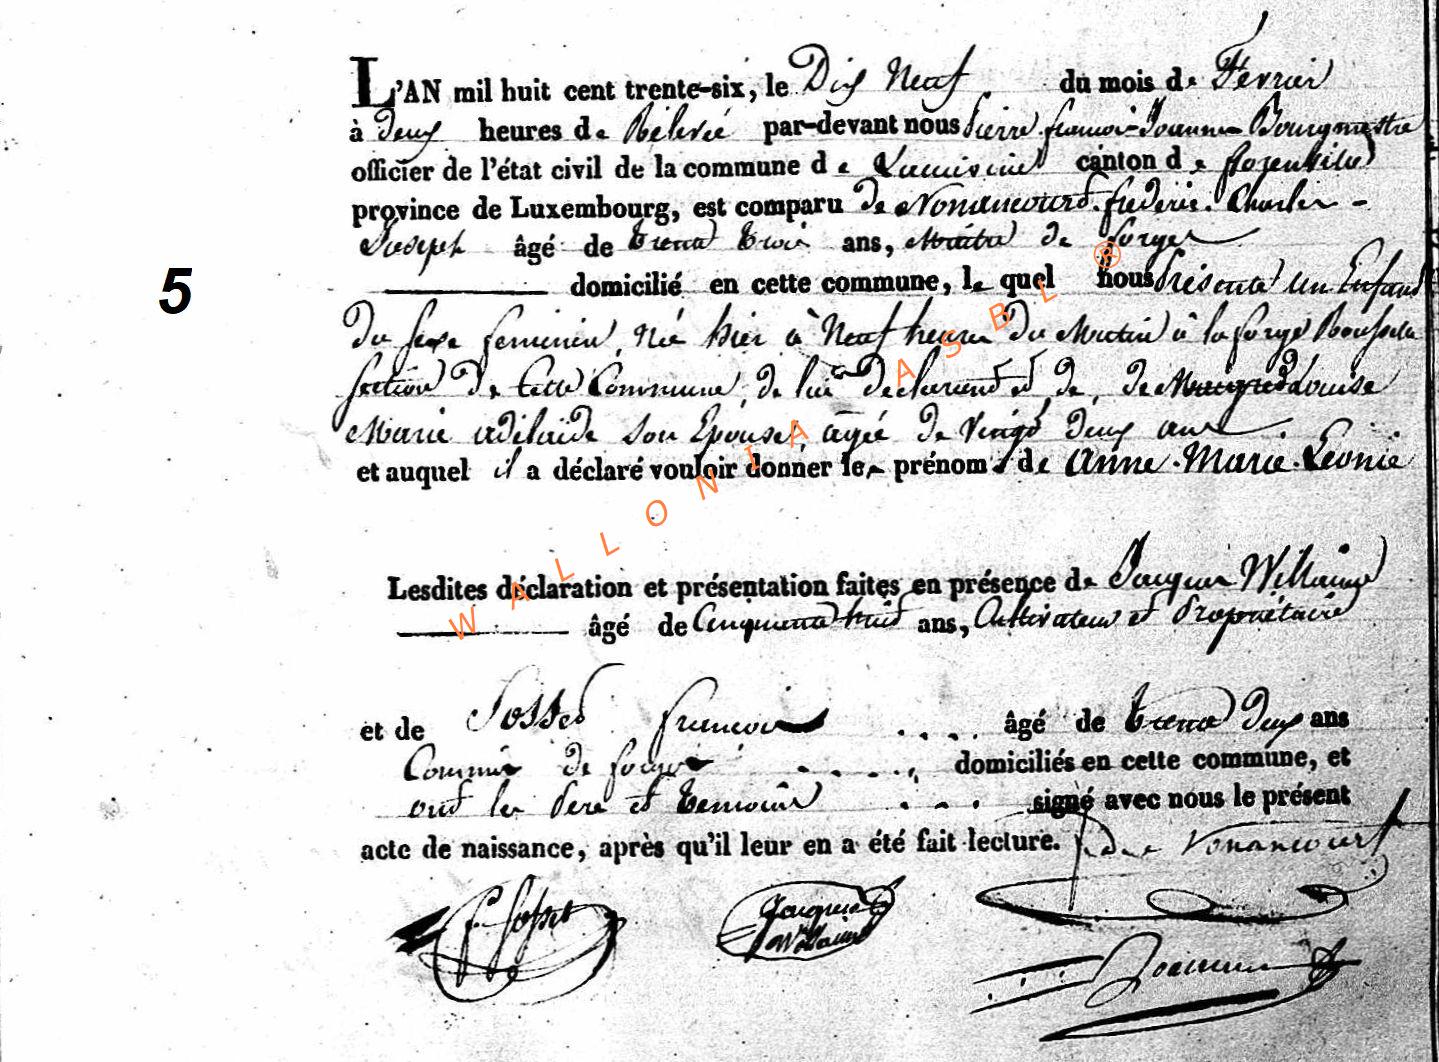 L'AN mil huit cent trente-six, le Dix Neuf du mois de Fevrier
à deux heures de Rélevée par-devant nous Pierre françois Bourgmestre
officier de l'état civil de la commune de canton de
province de Luxembourg, est comparu de Nonancourt. frederic. Charles -
Joseph âgé de trente trois ans, Maitre de forges
5
domicilié en cette commune, lequel nous présente un Enfant
du sexe feminin, né hier à Neuf heures du Matin à la forge
section de Cette Commune, de lui declarant et de, de Louise
Marie adelaide son Epouse, agée de vingt deux ans
et auquel il a déclaré vouloir donner les prénoms de Anne. Marie. Léonie
Lesdites déclaration et présentation faites en présence de Jacques Willaime
âgé de Cinquante huit ans, Cultivateur et Propriétaire
et de Sosset francois .... âgé de trente deux ans
Commis de forges ..... domiciliés en cette commune, et
ont les Pere et temoins ... signé avec nous le présent
acte de naissance, après qu'il leur en a été fait lecture. f de Nonancourt
f. Sosset Jacques Willaime
WALLONIA ASBL ®